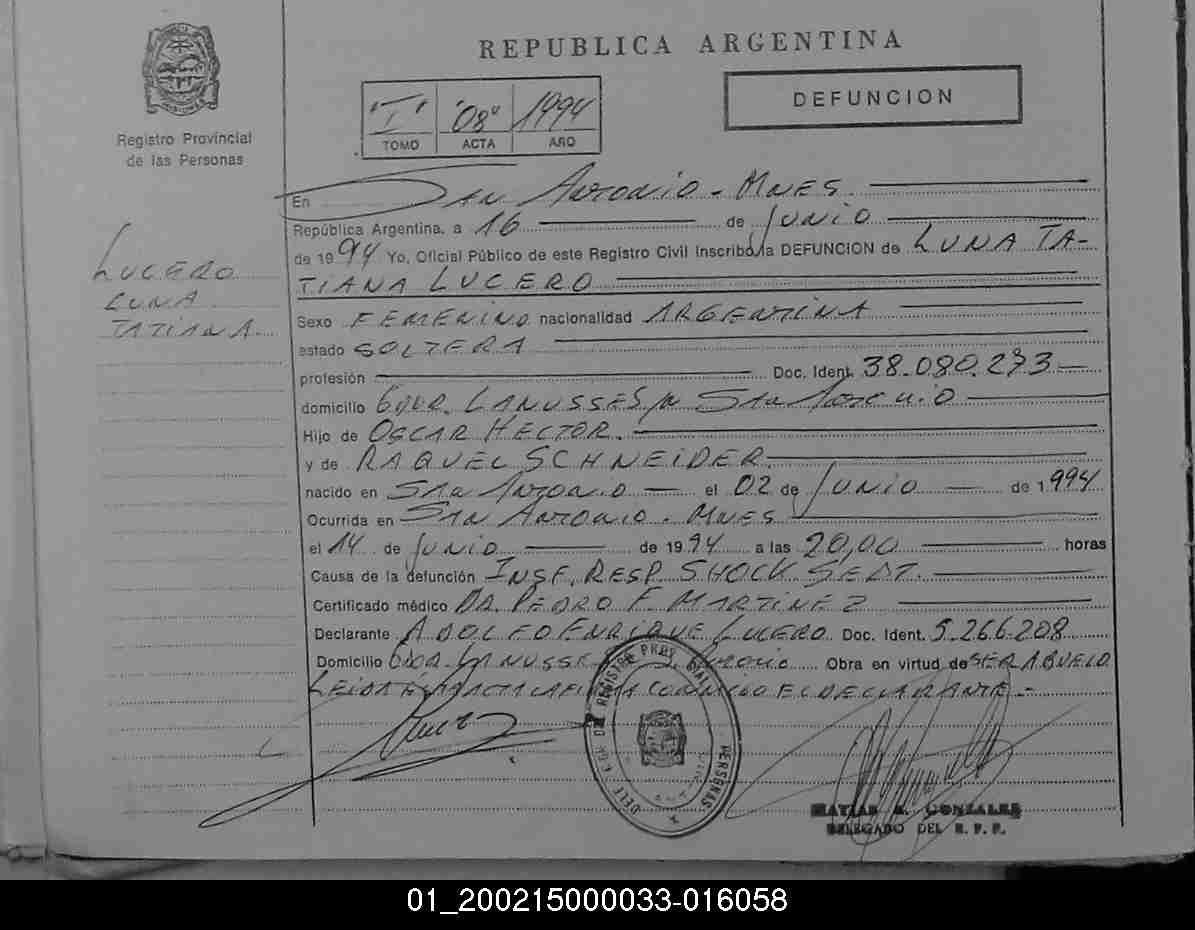 REPUBLICA ARGENTINA
DEFUNCION
"I" "08" 1994
TOMO ACTA AÑO
Registro Provincial
de las Personas
LUCERO
LUNA
TATIANA
En SAN ANTONIO - MNES.
República Argentina, a 16 de JUNIO
de 1994 Yo, Oficial Público de este Registro Civil inscribo la DEFUNCION de LUNA TA-
TIANA LUCERO
Sexo FEMENINO nacionalidad ARGENTINA
estado SOLTERA
profesión Doc. Ident. 38.080.273
domicilio GDOR. LANUSSE S/N SAN ANTONIO
Hijo de OSCAR HECTOR.
y de RAQUEL SCHNEIDER.
nacido en SAN ANTONIO el 02 de JUNIO de 1994
Ocurrida en SAN ANTONIO. MNES
el 14 de JUNIO de 1994 a las 20,00 horas
Causa de la defunción INSF. RESP. SHOCK SEPT.
Certificado médico DR. PEDRO F. MARTINEZ
Declarante ADOLFO ENRIQUE LUCERO Doc. Ident. 5.266.208
Domicilio GDOR. LANUSSE S. ANTONIO Obra en virtud de SER ABUELO
LEIDA EL ACTA LA FIRMA CONMIGO EL DECLARANTE -
REGISTRO PROVINCIAL
PERSONAS
MATIAS GONZALEZ
DELEGADO DEL R. P. P.
01_200215000033-016058